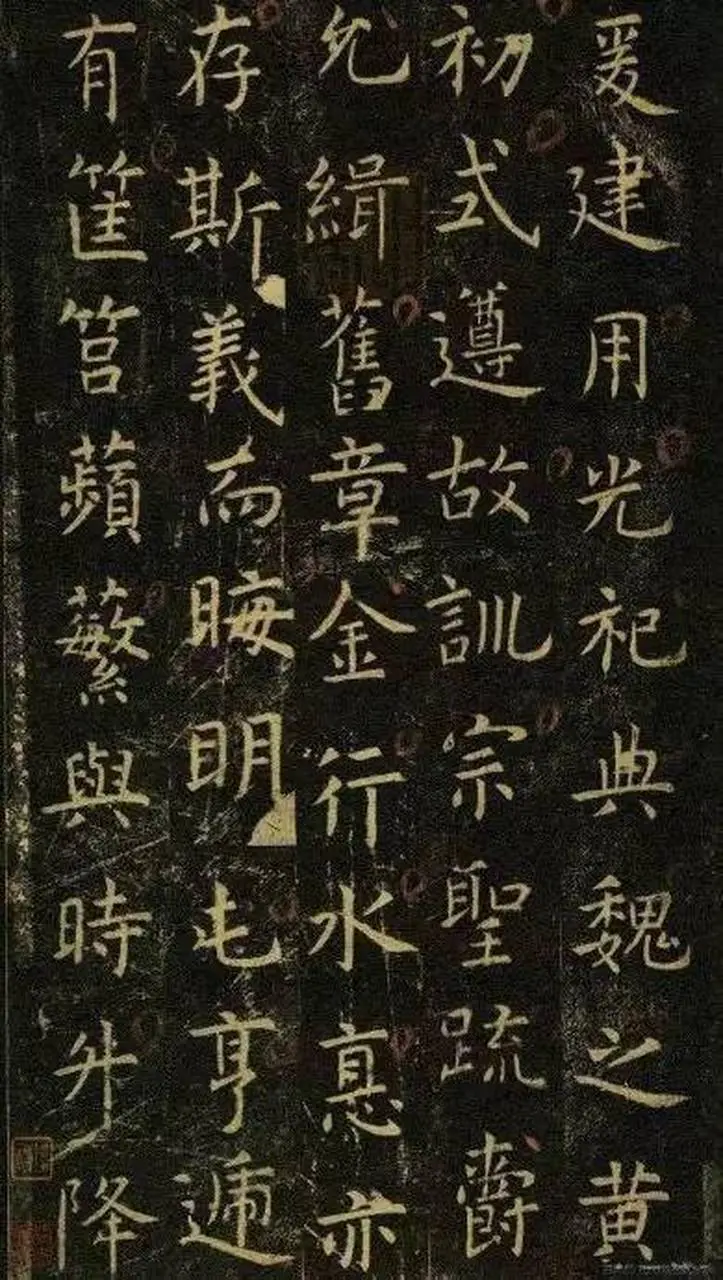 爰建用光祀典魏之黄
初式遵故訓宗聖疏爵
允緝舊章金行水悳亦
存斯義而晦明屯亨遞
有筐筥蘋蘩與時升降